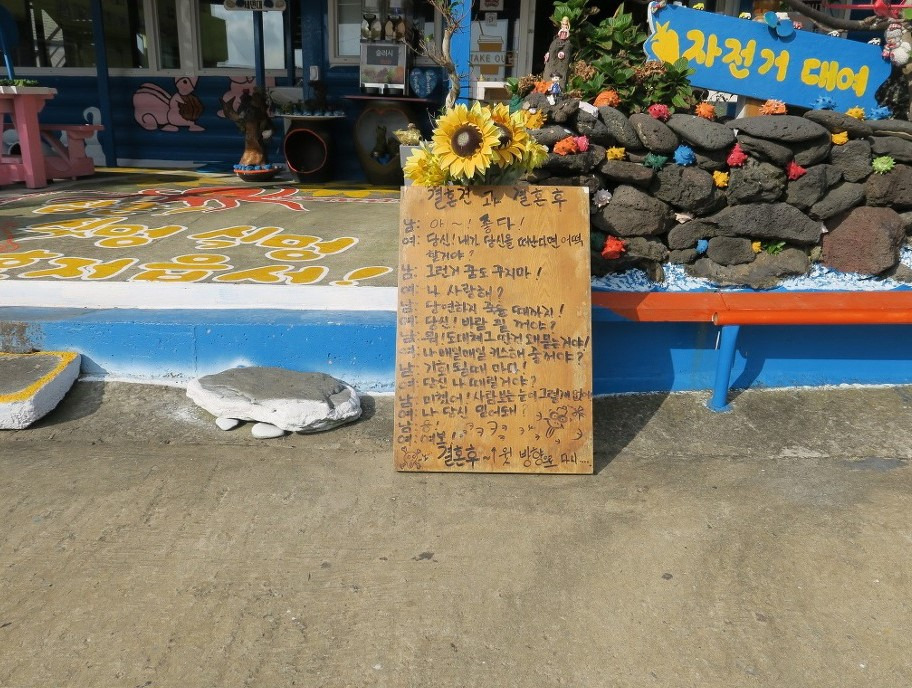 TAKE OUT
자전거 대여
결혼전 과 결혼후
남: 아~! 좋다!
여: 당신! 내가 당신을 떠난다면 어떡
할거야?
남: 그런거 꿈도 꾸지마!
여: 나 사랑해?
남: 당연하지 죽을 때까지!
여: 당신! 바람 필 꺼야?
남: 뭐! 도대체 그딴건 왜 묻는거야!
여: 나 매일매일 키스해 줄거야?
남: 기회 될때 마다!
여: 당신 나 때릴거야?
남: 미쳤어! 사람 보는 눈이 그렇게 없어
여: 나 당신 믿어도돼?
남: 응!
여: 여보!
결혼후 ~ 위 방향으로 다시....